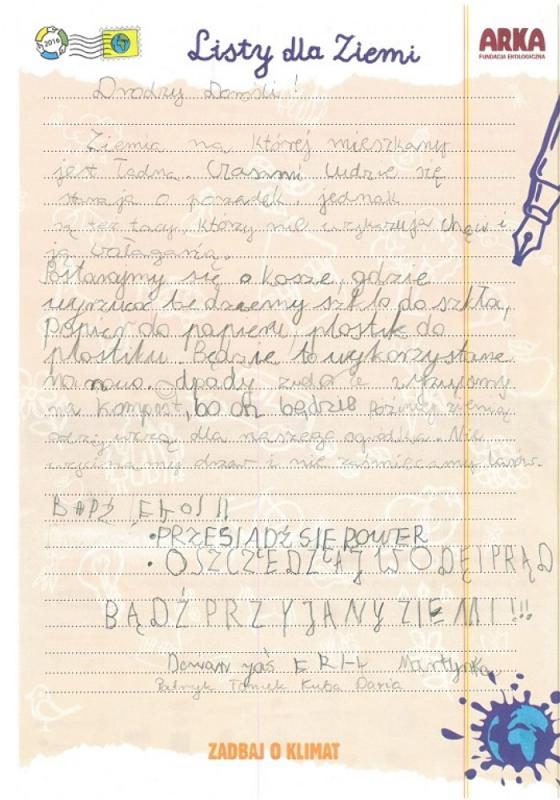 2016
Listy dla Ziemi
ARKA
FUNDACJA EKOLOGICZNA
Drodzy !
Ziemia na której mieszkamy
jest ładna. Czasami ludzie się
starają o porządek, jednak
są też tacy, którzy nie wykazują chęci i
ją bałaganią.
Postarajmy się o kosze, gdzie
wyrzucać będziemy szkło do szkła,
papier do papieru, plastik do
plastiku. Będzie to wykorzystane
na nowo. odpady
na kompost, bo on będzie później ziemią
odżywczą dla naszego ogródka. Nie
wycinajmy drzew i nie zaśmiecajmy lasów.
BĄDŹ EKO!!
•PRZESIĄDŹ SIĘ ROWER
•OSZCZĘDZAJ WODĘ I PRĄD
BĄDŹ PRZYJANY ZIEMI!!!
Jaś Martynka
Patryk Tomek Kuba Daria
ZADBAJ O KLIMAT